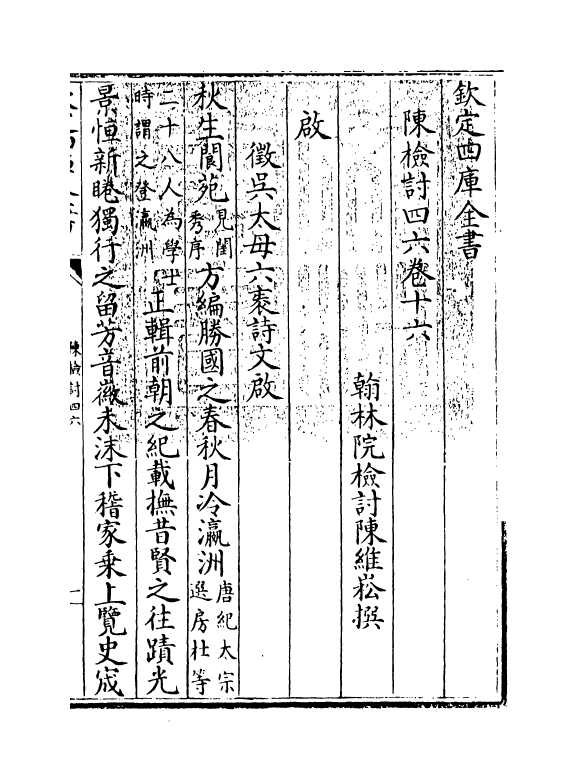 欽定四庫全書
陳檢討四六卷十六
翰林院檢討陳維崧撰
啟
徵吳太母六袠詩文啟
秋生閬苑見閨秀序方編勝國之春秋月冷瀛洲唐紀太宗選房杜等
二十八人為學士時謂之登瀛洲正輯前朝之紀載撫昔賢之往蹟光
景恒新睠獨行之留芳音徽未沫下稽家乗上覽史宬
陳檢討四六
一